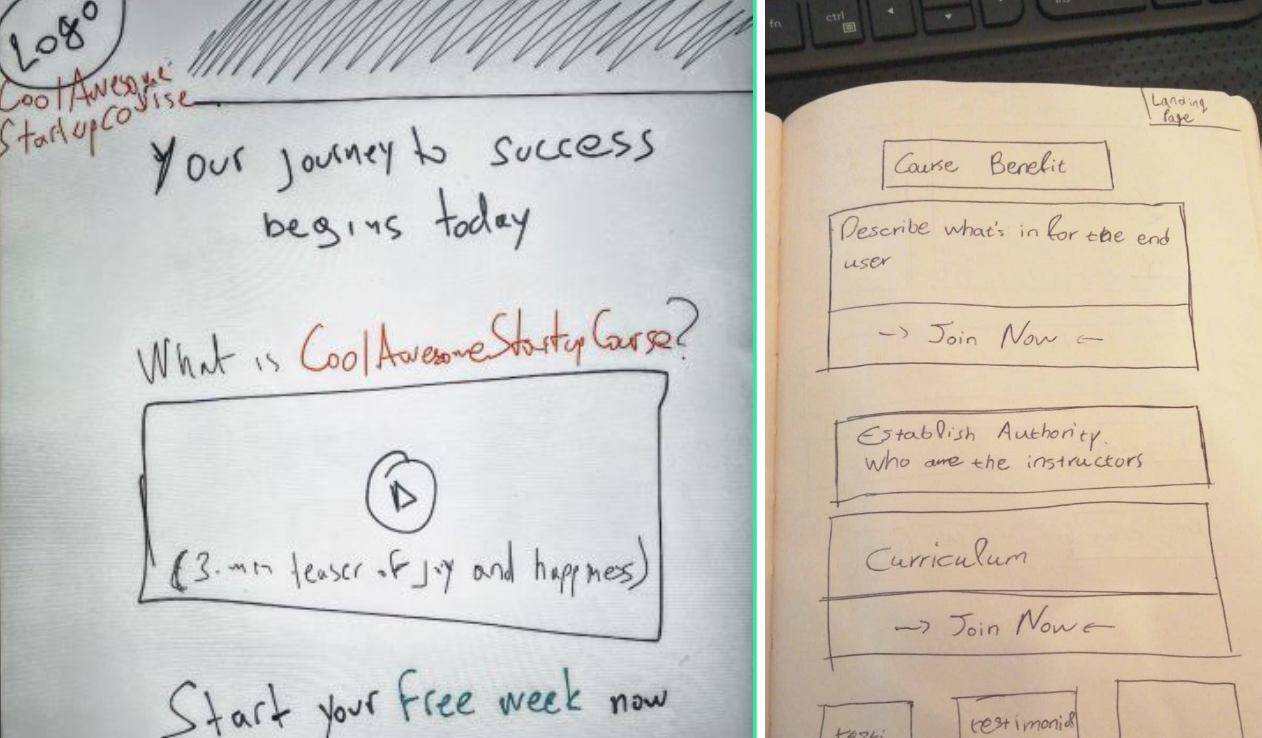 Logo
CoolAwesome
StartupCourse
Your journey to success
begins today
What is CoolAwesomeStartupCourse?
(3-min teaser of joy and happiness)
Start your free week now
fn
ctrl
Landing
Page
Course Benefit
Describe what's in for the end
user
-> Join Now <-
Establish Authority.
Who are the instructors
Curriculum
-> Join Now <-
testimonial